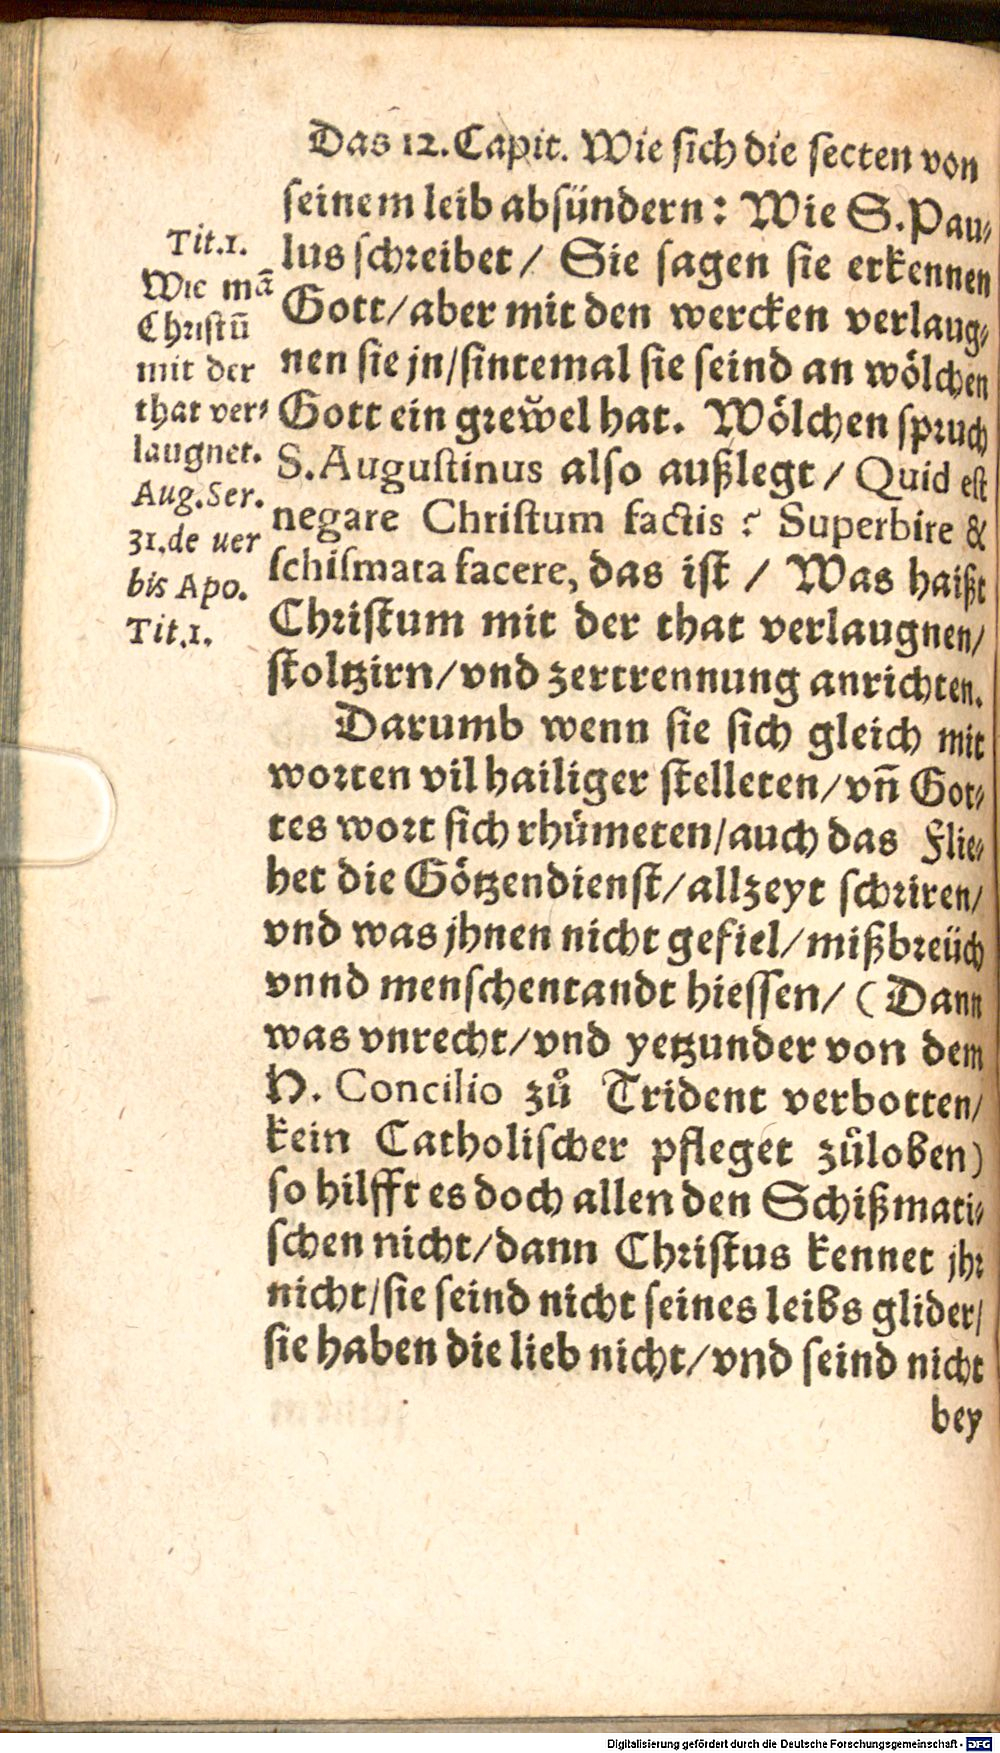 Das 12. Capit. Wie sich die secten von
seinem leib absündern: Wie S. Pau-
lus schreibet / Sie sagen sie erkennen
Gott / aber mit den wercken verlaug-
nen sie jn / sintemal sie seind an wölchen
Gott ein grew̃el hat. Wölchen spruch
S. Augustinus also außlegt / Quid est
negare Christum factis? Superbire &
schismata facere, das ist / Was haißt
Christum mit der that verlaugnen /
stoltzirn / vnd zertrennung anrichten.
Tit.1.
Wie mā
Christū
mit der
that ver-
laugnet.
Aug. Ser.
31. de uer
bis Apo.
Tit.1.
Darumb wenn sie sich gleich mit
worten vil hailiger stelleten / vñ Got-
tes wort sich rhümeten / auch das Flie-
het die Götzendienst / allzeyt schriren /
vnd was jhnen nicht gefiel / mißbreüch
vnnd menschentandt hiessen / (Dann
was vnrecht / vnd yetzunder von dem
H. Concilio zů Trident verbotten /
kein Catholischer pfleget zůloben)
so hilfft es doch allen den Schißmati-
schen nicht / dann Christus kennet jhr
nicht / sie seind nicht seines leibs glider /
sie haben die lieb nicht / vnd seind nicht
bey
Digitalisierung gefördert durch die Deutsche Forschungsgemeinschaft - DFG